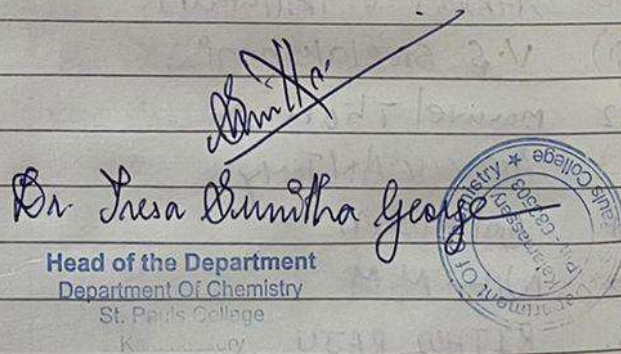 Sunitha
Dr Tresa Sunitha George
Head of the Department
Department Of Chemistry
St. Paul's College
Department Of Chemistry ★ St. Pauls College
Kalamassery
Pin - 683503
V.S
RITHU RAJU